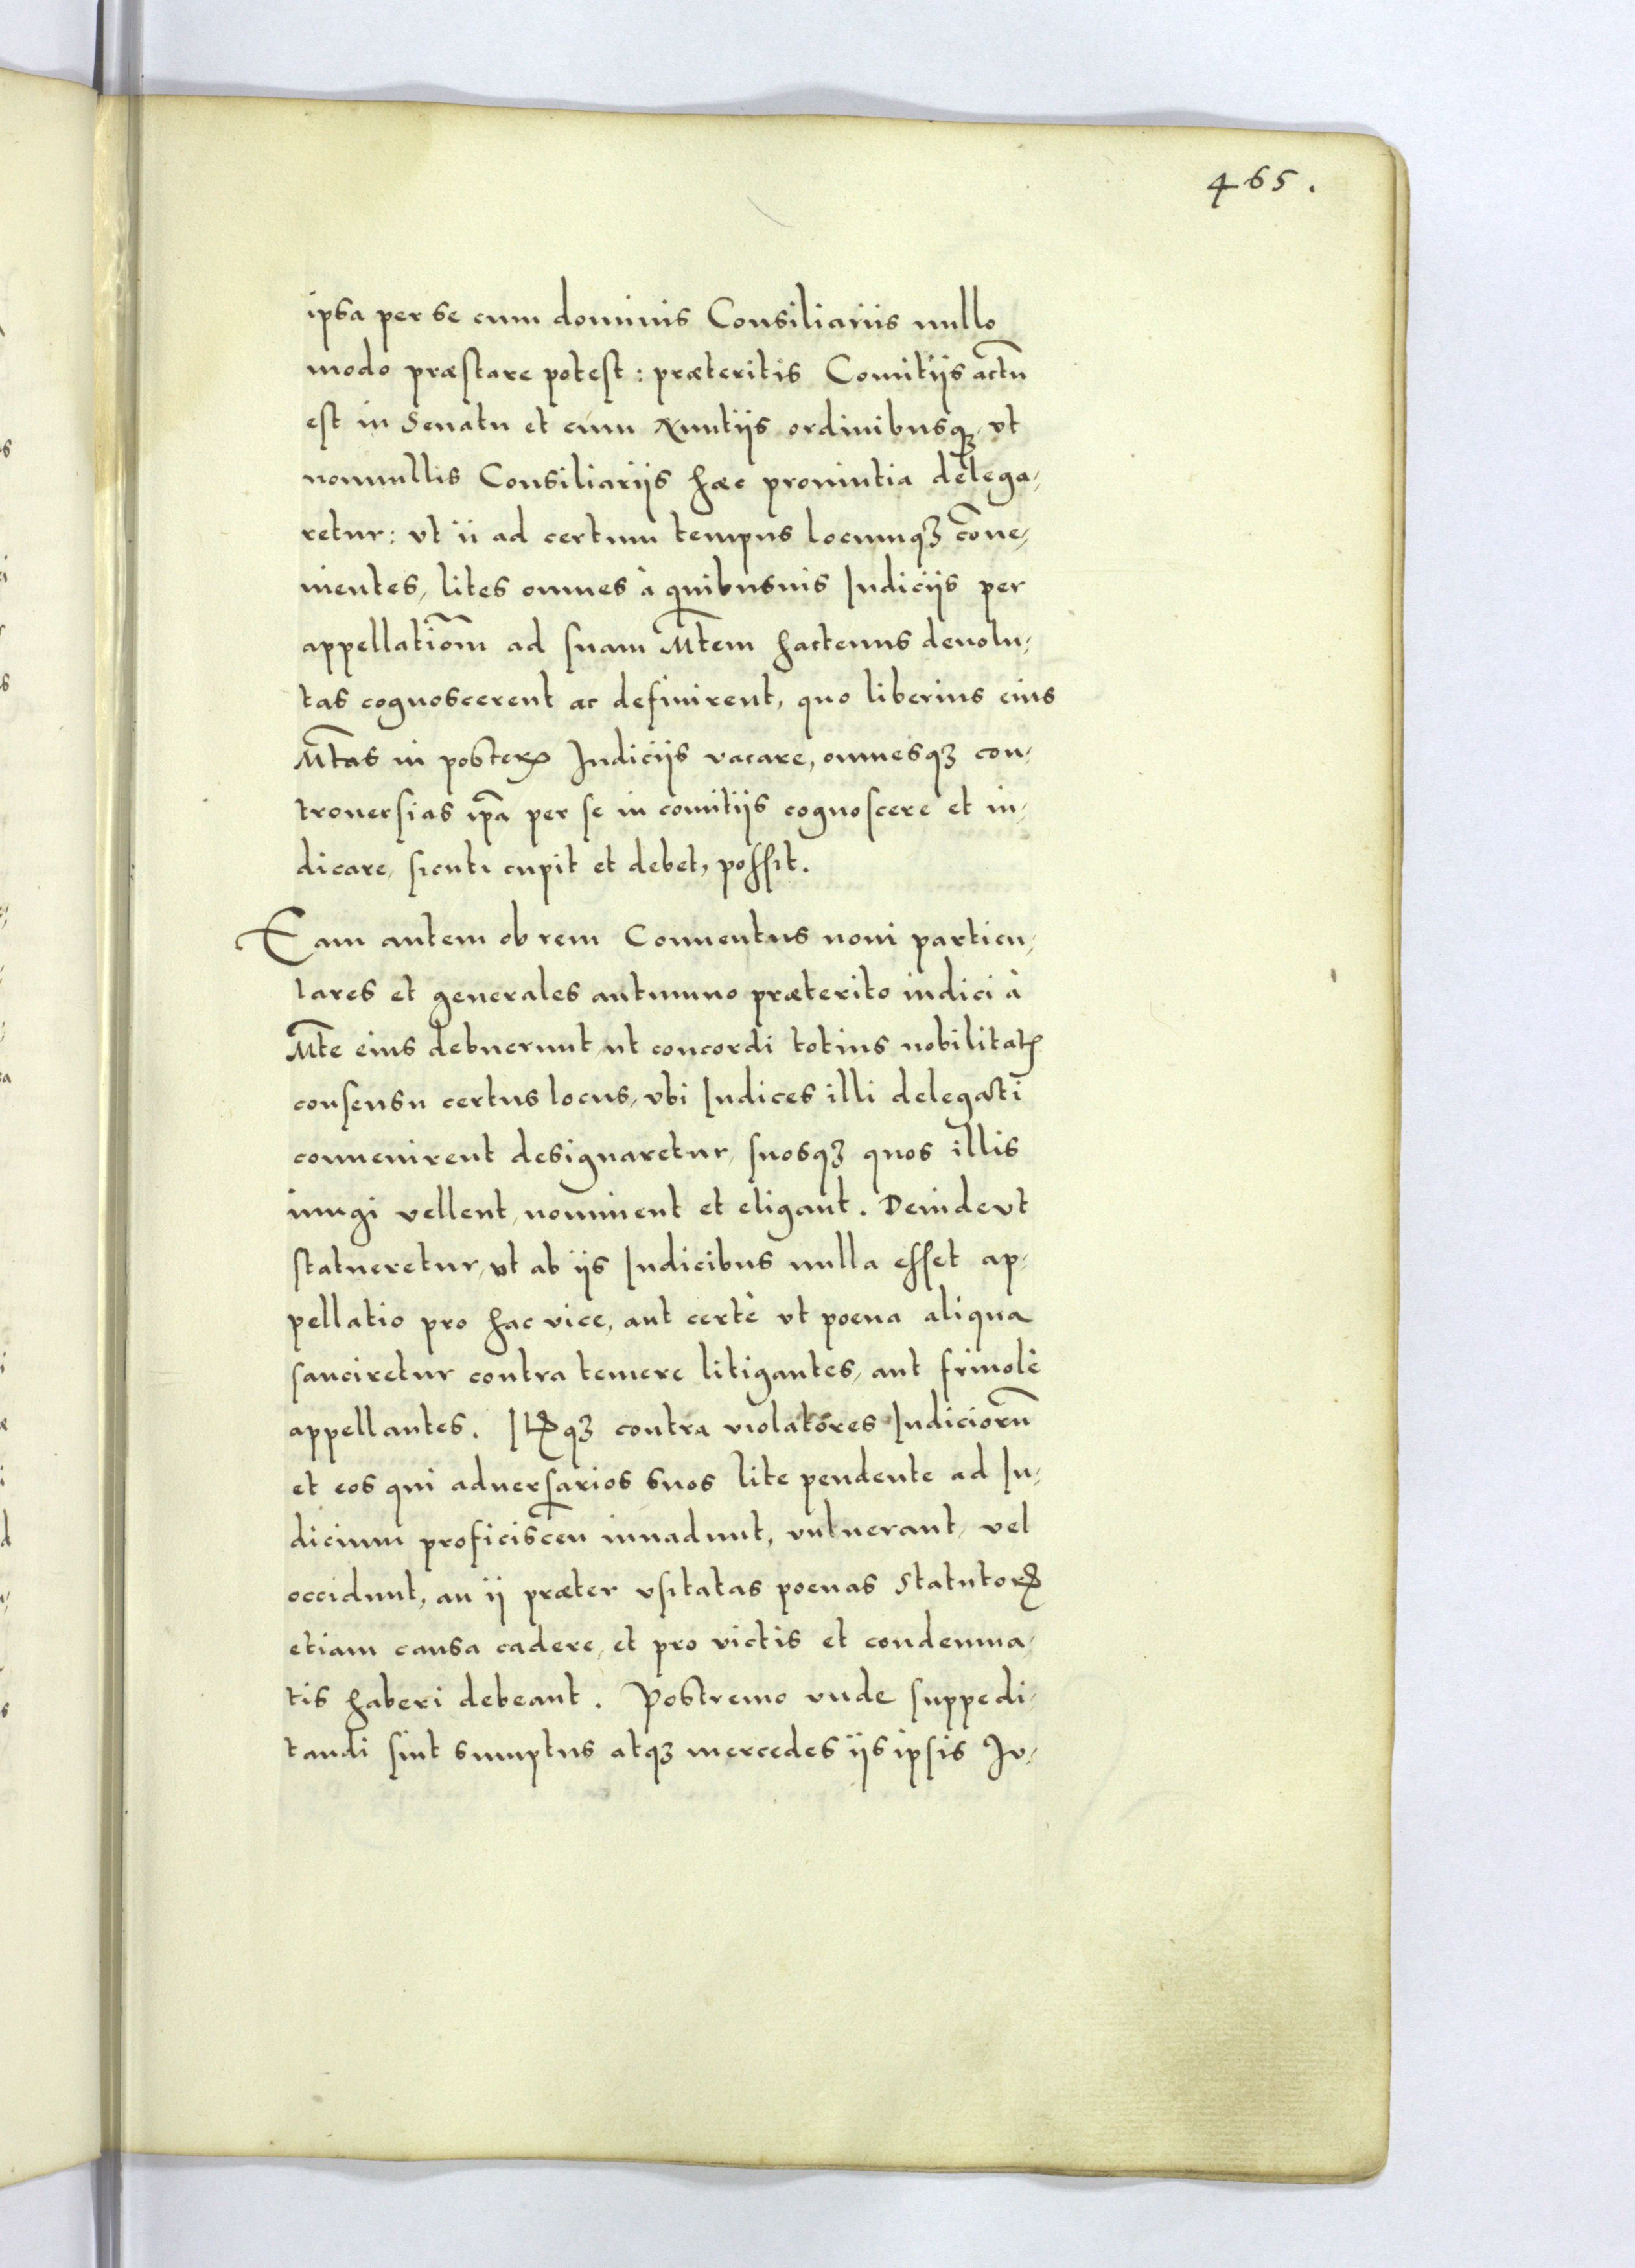 465.
ipsa per se cum dominis Consiliariis nullo
modo præstare potest: præteritis Comitijs actũ
est in Senatu et cum Nuntijs ordinibusqꝫ, vt
nonnullis Consiliarijs hæc prouintia delega-
retur: vt ii ad certum tempus locumqꝫ cõue-
nientes, lites omnes à quibusuis Iudicijs per
appellatiõm ad suam Mtem hactenus deuolu-
tas cognoscerent ac definirent, quo liberius eius
Mtas in posteꝝ Iudicijs vacare, omnesqꝫ con-
trouersias ip̃a per se in comitijs cognoscere et iu-
dicare, sicuti cupit et debet, possit.
Eam autem ob rem Conuentus noui particu-
lares et generales autumno præterito indici à
Mte eius debuerunt, ut concordi totius nobilitatꝭ
consensu certus locus, vbi Iudices illi delegati
conuenirent designaretur, suosqꝫ quos illis
iungi vellent, nominent et eligant. Deinde vt
statueretur, vt ab ijs Iudicibus nulla esset ap-
pellatio pro hac vice, aut certè vt poena aliqua
sanciretur contra temere litigantes, aut friuolè
appellantes. Itẽqꝫ contra violatores Iudiciorũ
et eos qui aduersarios suos lite pendente ad Iu-
dicium proficiscẽn inuadunt, vulnerant, vel
occidunt, an ij præter vsitatas poenas Statutoꝝ
etiam causa cadere, et pro victis et condemna-
tis haberi debeant. Postremo vnde suppedi-
tandi sint sumptus atqꝫ mercedes ijs ipsis Iu-